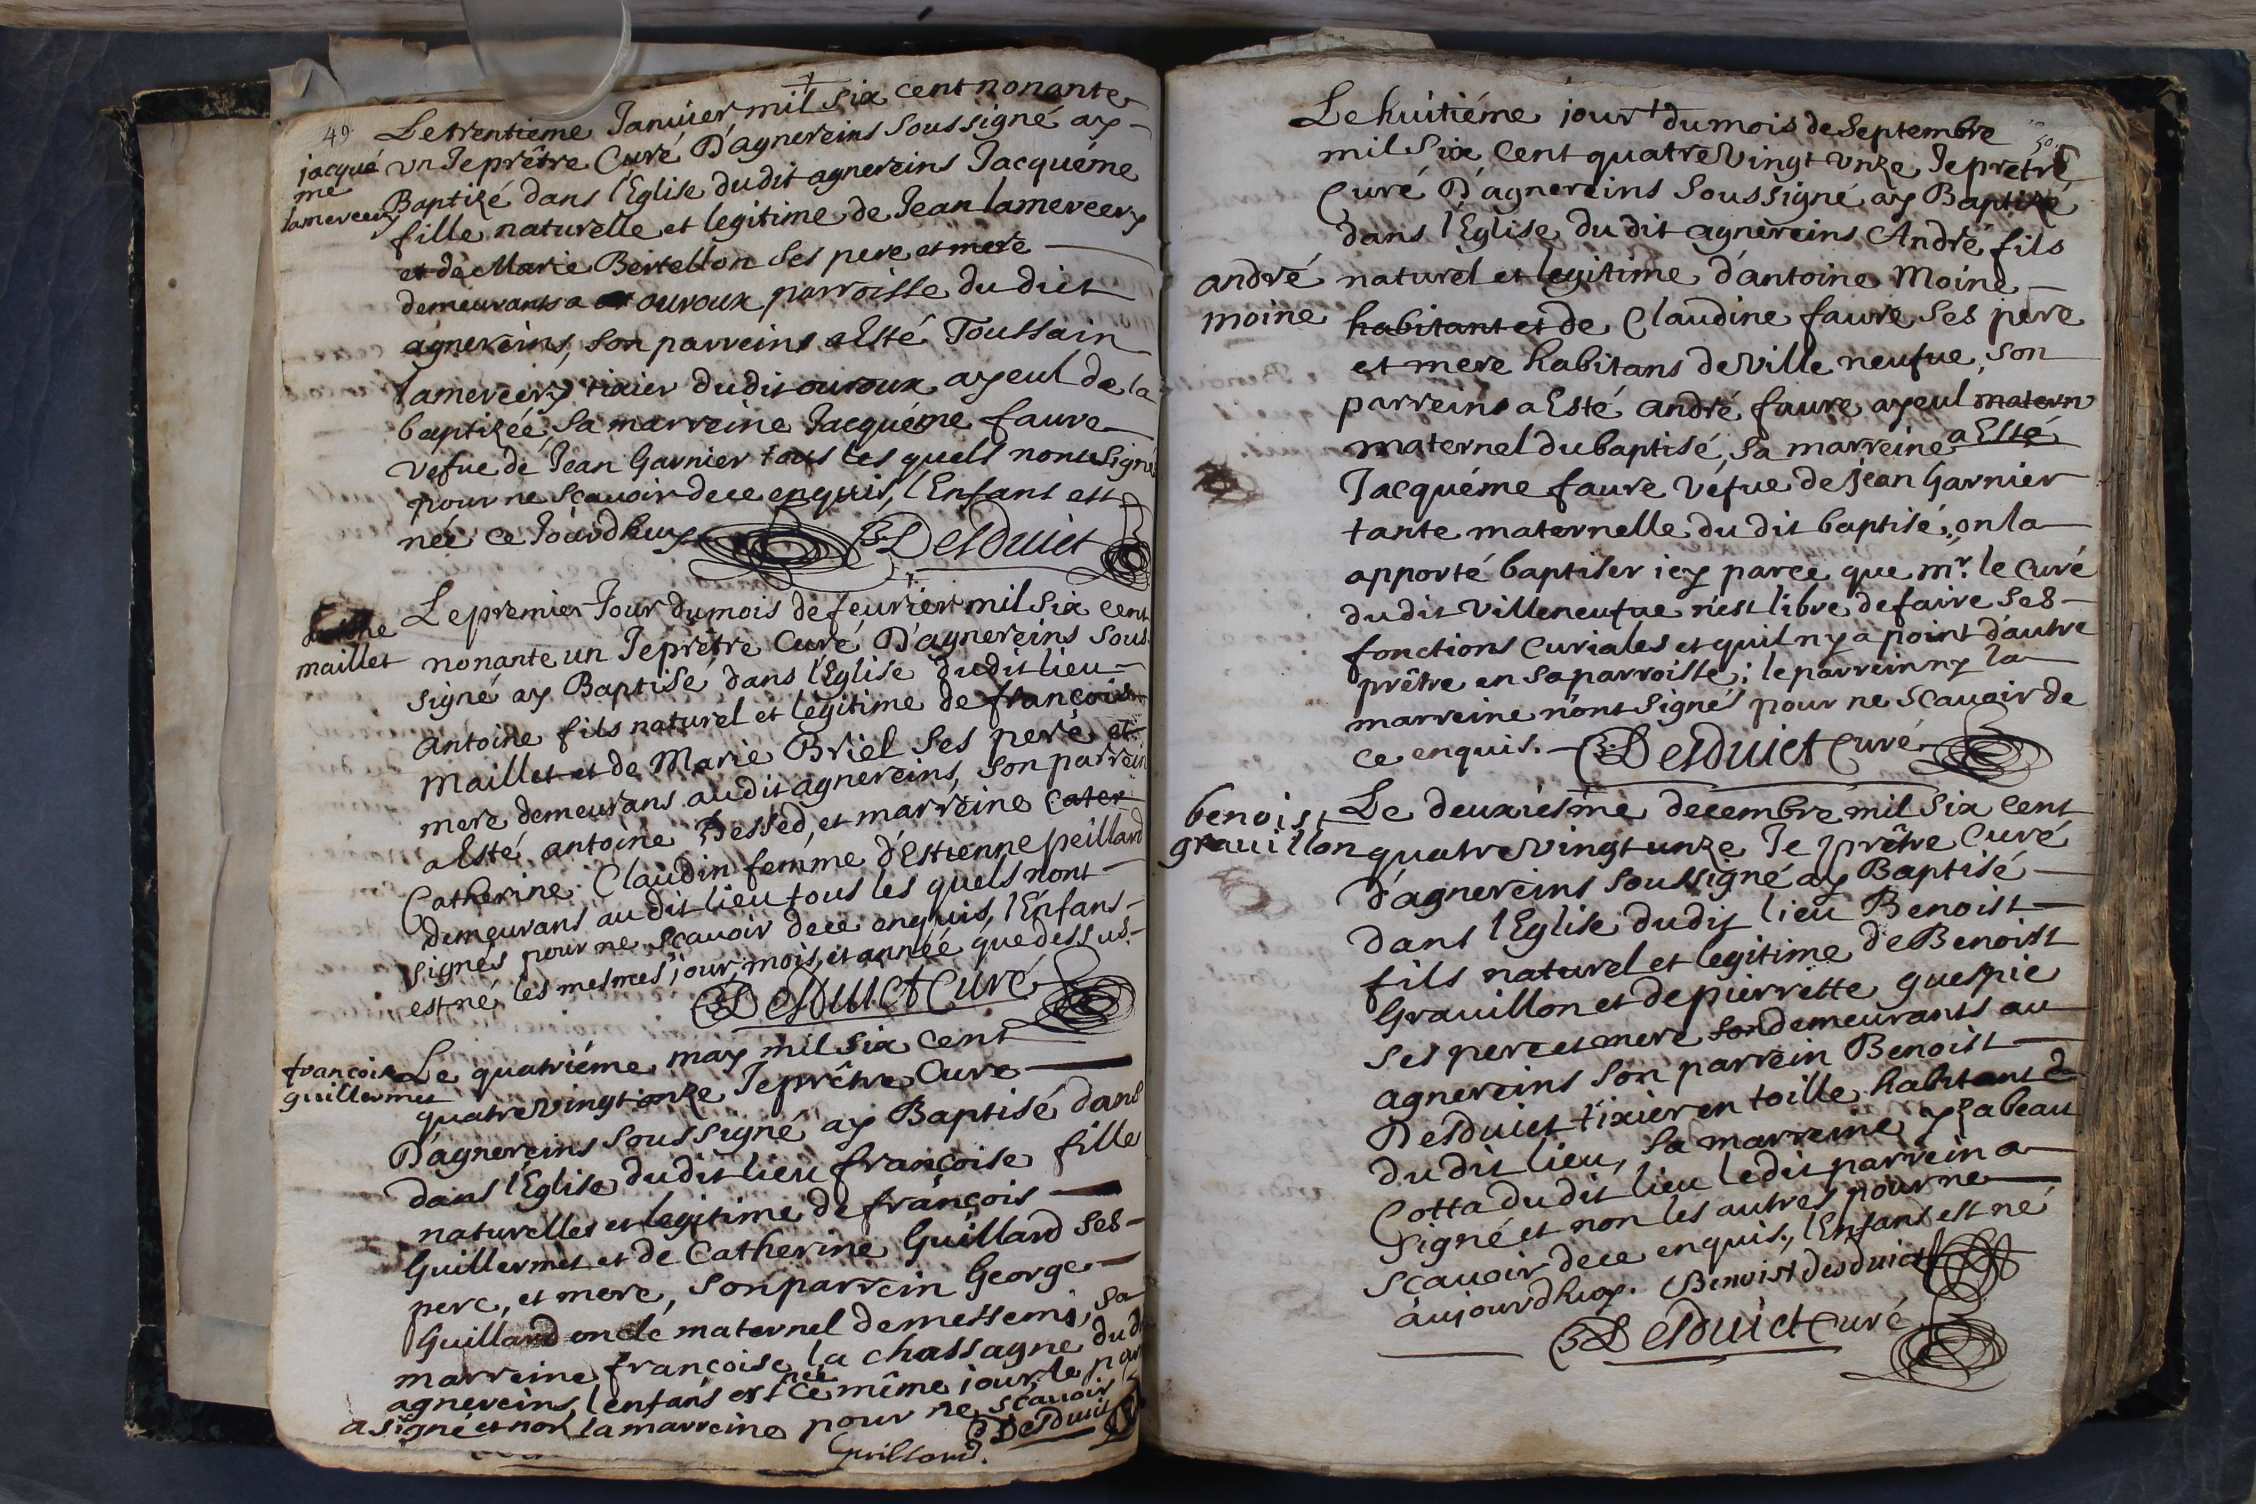 49
Le trentieme Januier mil six cent nonante
jacqué
me
lamercery
un Je prêtre Curé D'agnereins soussigné ay
Baptizé dans l'Eglise dudit agnereins Jacquéme
fille naturelle et legitime de Jean lamercery
et de Marie Bertellon ses pere et mere
demeurants a ouroux parroisse du dict
agnereins, son parreins a Esté Toussain
lamercery tixier dudit ouroux ayeul de la
baptizéé, sa marreine Jacquéme faure
vefue de Jean Garnier tous les quels nont signé
pour ne sçauoir de ce enquis, l'Enfant est
néé ce Jourdhuy
BDesduict
maillet
Le premier Jour du mois de feurier mil six cent
nonante un Je prêtre Curé D'agnereins sous
signé ay Baptisé dans l'Eglise dudit lieu
antoine fils naturel et legitime de françois
Maillet et de Marie Briel ses pere et
mere demeurans audit agnereins, son parrein
a Esté antoine Bessed, et marreine cater
Catherine Claudin femme d'Estienne peillard
demeurans au dit lieu tous les quels nont
signés pour ne sçauoir de ce enquis, l'Enfans
est né les mesmes jour, mois, et annéé que dessus
BDesduict Curé
francoise
guillermet
Le quatriéme may mil six cent
quatre vingt onze Je prêtre Cure
D'agnereins soussigné ay Baptisé dans
dans l'Eglise dudit lieu françoise fille
naturelle et legitime de françois
Guillermet et de Catherine Guillard ses
pere, et mere, son parrein George
Guillard oncle maternel de messemi, sa
marreine françoise la chassagne du d
agnereins, l'enfans est néé ce même jour, le par
a signé et non la marreine pour ne sçauoir
BDesduict
Guillard.
50
Le huitiéme jour du mois de Septembre
mil six cent quatre vingt unze Je prêtre
Curé D'agnereins soussigné ay Baptizé
dans l'Eglise du dit agnereins André fils
andré
moine
naturel et legitime d'antoine Moine
habitant et de Claudine faure ses pere
et mere habitans de Ville neufue, son
parreins a Esté andré faure ayeul matern
maternel du baptisé, sa marreine a Esté
Jacquéme faure véfue de Jean Garnier
tante maternelle du dit baptisé, on la
apporté baptiser icy parce que mr. le curé
du dit Villeneufue n'est libre de faire ses
fonctions curiales et quil ny a point d'autre
prêtre en sa parroisse; le parrein ny la
marreine n'ont signés pour ne sçauoir de
ce enquis. BDesduict Curé
benoist
grauillon
Le deuxiesme decembre mil six cent
quatre vingt unze Je prêtre Curé
d'agnereins soussigné ay Baptisé
dans l'Eglise dudit lieu Benoist
fils naturel et legitime de Benoist
Grauillon et de pierrette guespie
ses pere et mere son demeurants au
agnereins son parrein Benoist
Desduict tixier en toille habitant d
du dit lieu, sa marreine yzabeau
Cotta du dit lieu le dit parrein a
signé et non les autres pour ne
scauoir de ce enquis, l'Enfans est né
aujourdhuy. Benoist desduict
BDesduict Curé